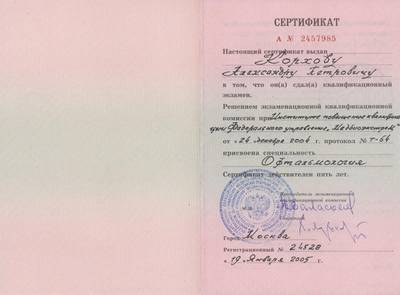 СЕРТИФИКАТ
А № 2457985
Настоящий сертификат выдан
Корхову
Александру Петровичу
в том, что он(а) сдал(а) квалификационный
экзамен.
Решением экзаменационной квалификационной
комиссии при Институте повышения квалифика
ции Федерального управления „Медбиоэкстрем"
от «24 декабря 2004 г. протокол № Т-64
присвоена специальность
Офтальмология
Сертификат действителен пять лет.
Председатель экзаменационной
квалификационной комиссии
Город Москва
Регистрационный № 24528
«19 Января 2005 г.